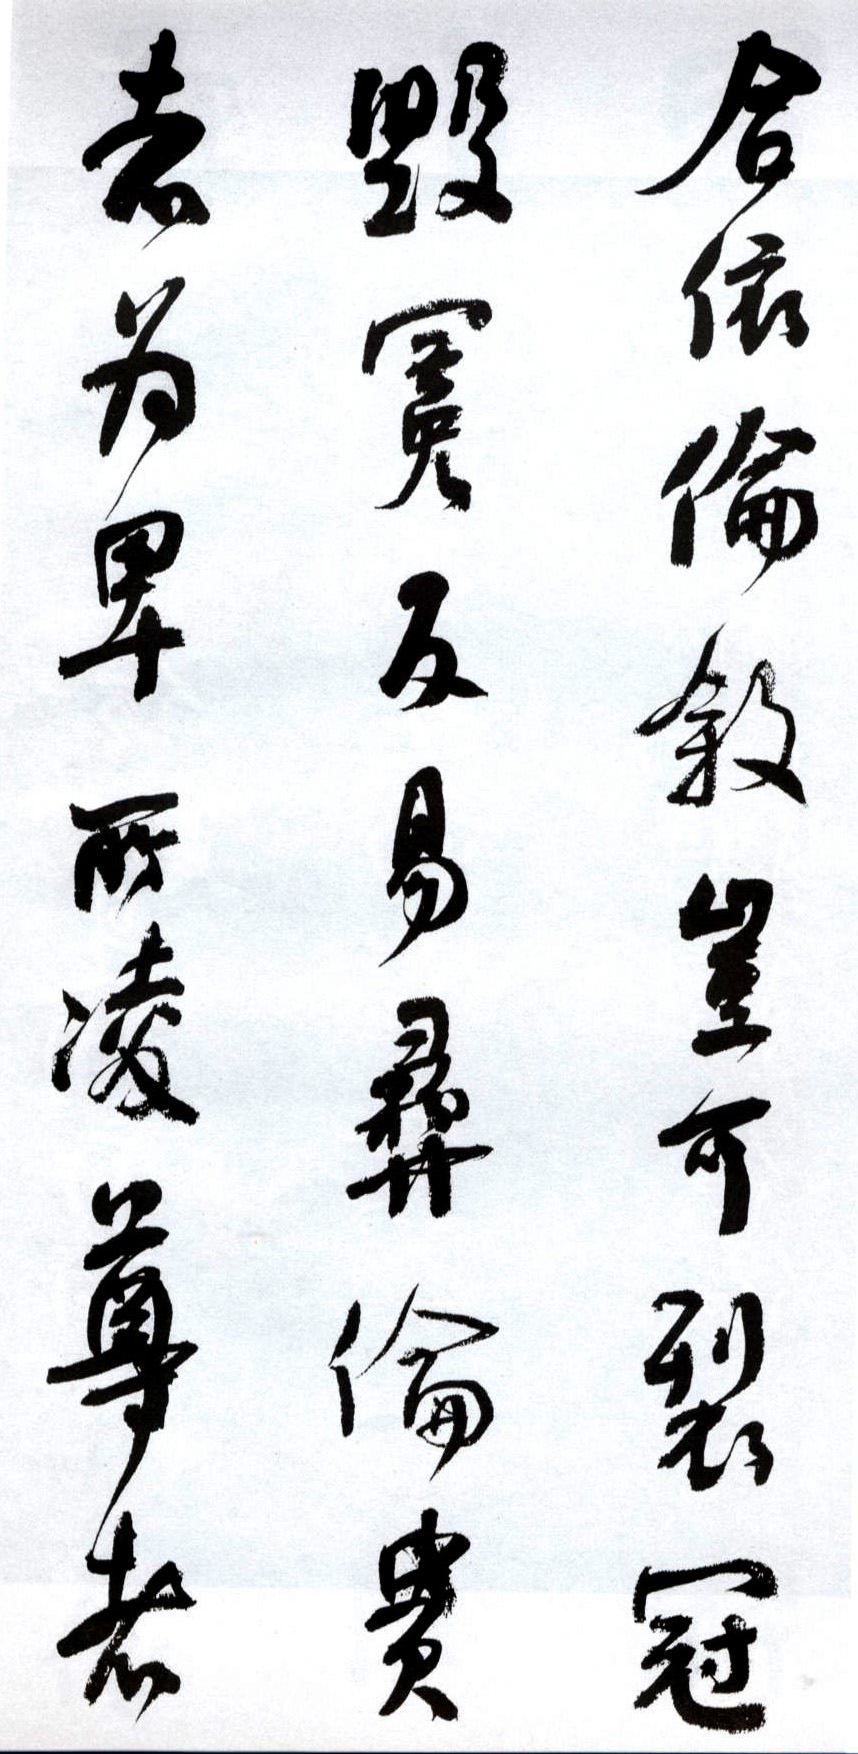 合依倫敘豈可裂冠
毀冕反易彝倫貴
者為卑所凌尊者